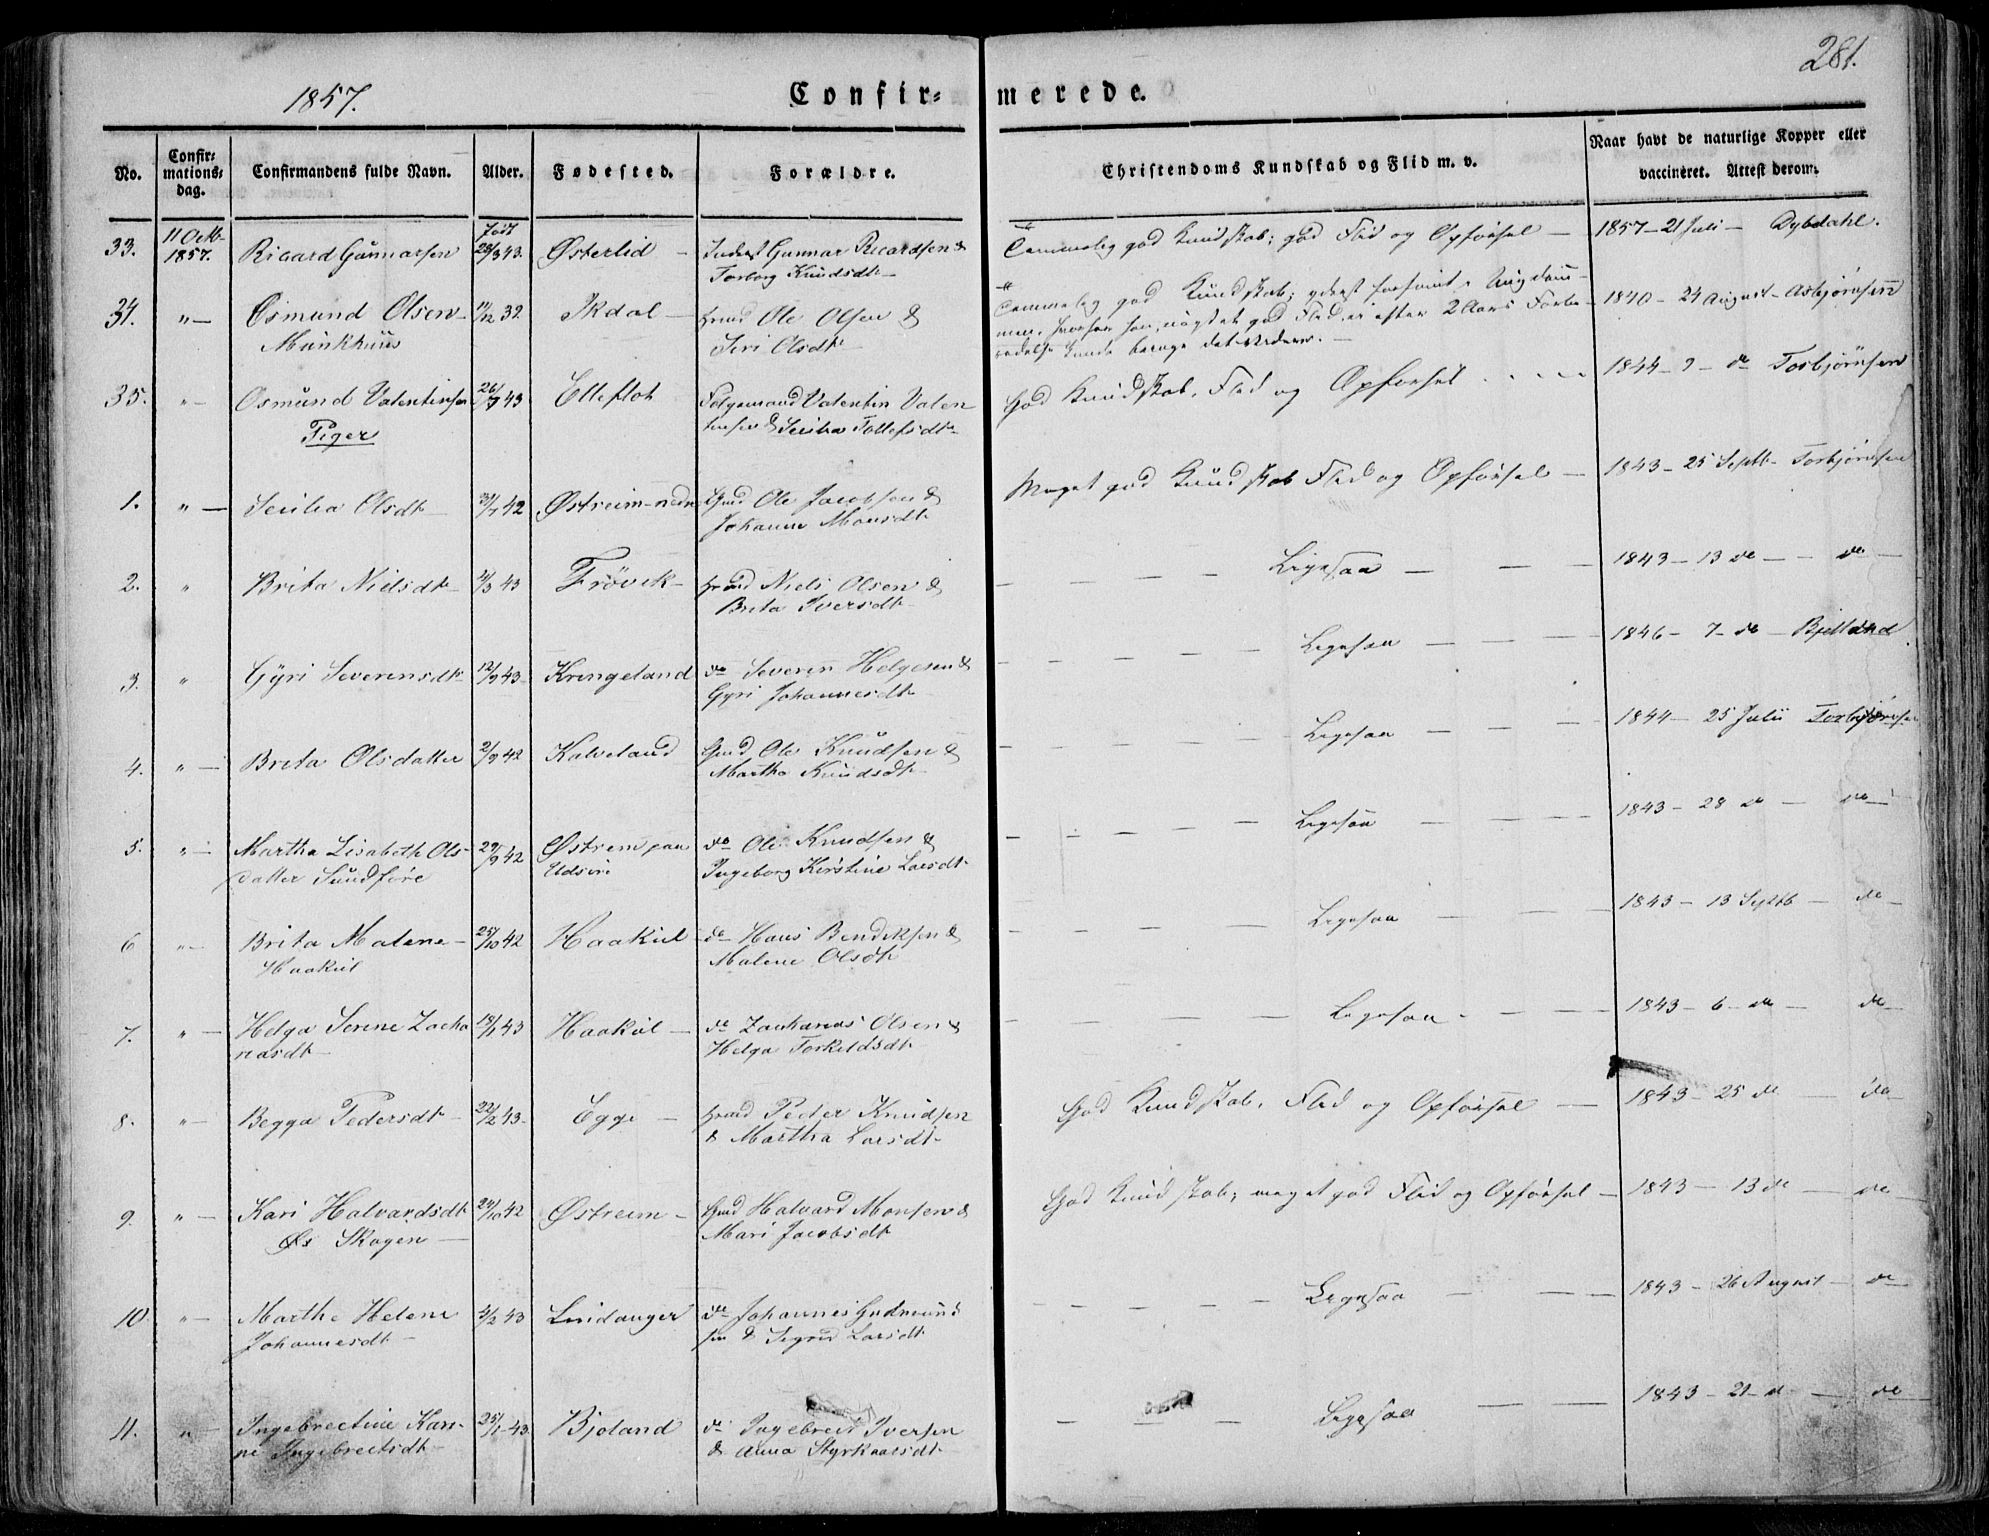 281.
1857. Confir= merede.
No. Confir= mations= dag. Confirmandens fulde Navn. Alder. Fødested. Forældre. Christendoms Kundskab og Flid m. v. Naar havt de naturlige Kopper eller vaccineret. Attest derom.
33. 11 Octb. 1857. Ricard Gunnarsen Født 28/3 43. Østerlid – Gunnar Ricardsen & Torborg Knudsdt. Temmelig god Kundskab; god Flid og Opførsel – 1857 – 21 Juli – Dybdahl.
34. " – Osmund Olsen Munkhuus 11/12 32 Ikdal – Ole Olsen & Siri Olsdt. Temmelig god Kundskab; yderst forsømt i Ungdommen, god Flid, efter 2 Aars Forberedelse kunde 1840 – 24 August – Asbjørnsen
35. " – Osmund Valentinsen 26/7 43 Ellefloh Valentin Valentinsen & Sesilia Tollefsdt. God Kundskab, Flid og Opførsel 1844 – 9 – do Torbjørnsen
Piger
1. " – Sesilia Olsdt. 31/7 42 Østreim-nedre Gmd Ole Jacobsen & Johanne Monsdt. Meget god Kundskab Flid og Opførsel – 1843 – 25 Septb – Torbjørnsen
2. " Brita Nielsdt. 4/3 43 Frøvik – Niels Olsen & Brita Iversdt. – – – – Ligesaa – – – 1843 – 13 do – – do –
3. " Gyri Severinsdt. 12/9 43 Kringeland do Severin Helgesen & Gyri Johannesdt. – – – – – Ligesaa – – – – 1846 – 7 – do – Bjelland
4. " – Brita Olsdatter 2/9 42 Kalveland Gmd Ole Knudsen & Martha Knudsdt. – – – – – Ligesaa – – – – 1844 – 25 Julii Torbjørnsen
5. " – Martha Lisabeth Olsdatter Sundføre 29/9 42 Østrem paa Udsire do Ole Knudsen & Ingeborg Kirstine Larsdt. – – – – – Ligesaa – – – – 1843 – 28 do – do
6 " – Brita Malene – Haakul 25/10 42 Haakul do Hans Bendiksen & Malene Olsdt. – – – – – Ligesaa – – – – 1843 – 13 Septb – do
7. " – Helga Serine Zachariasdt. 18/1 43 Haakul – do Zacharias Olsen & Helga Torkildsdt. – – – – – Ligesaa – – – – 1843 – 6 – do – do
8. " – Begga Pedersdt. 22/2 43. Egge – Peder Knudsen & Martha Larsdt. God Kundskab, Flid og Opførsel – 1843 – 25 do – do
9. " – Kari Halvardsdt. Øs Skogen 24/10 42 Østreim – Gmd Halvard Monsen & Mari Jacobsdt. God Kundskab, meget god Flid og Opførsel – 1843 – 13 do – do
10 " – Marthe Helene Johannesdt. 4/2 43 Lindanger do Johannes Gudmundsen & Sigrid Larsdt. – – – – – Ligesaa – – – 1843 – 26 August – do
11. " – Ingebrectine Karine Ingebrectsdt. 25/1 43. Bjoland do Ingebrect Iversen & Anna Styrkaarsdt. – – – – Ligesaa – – – 1843 – 21 – d – – do